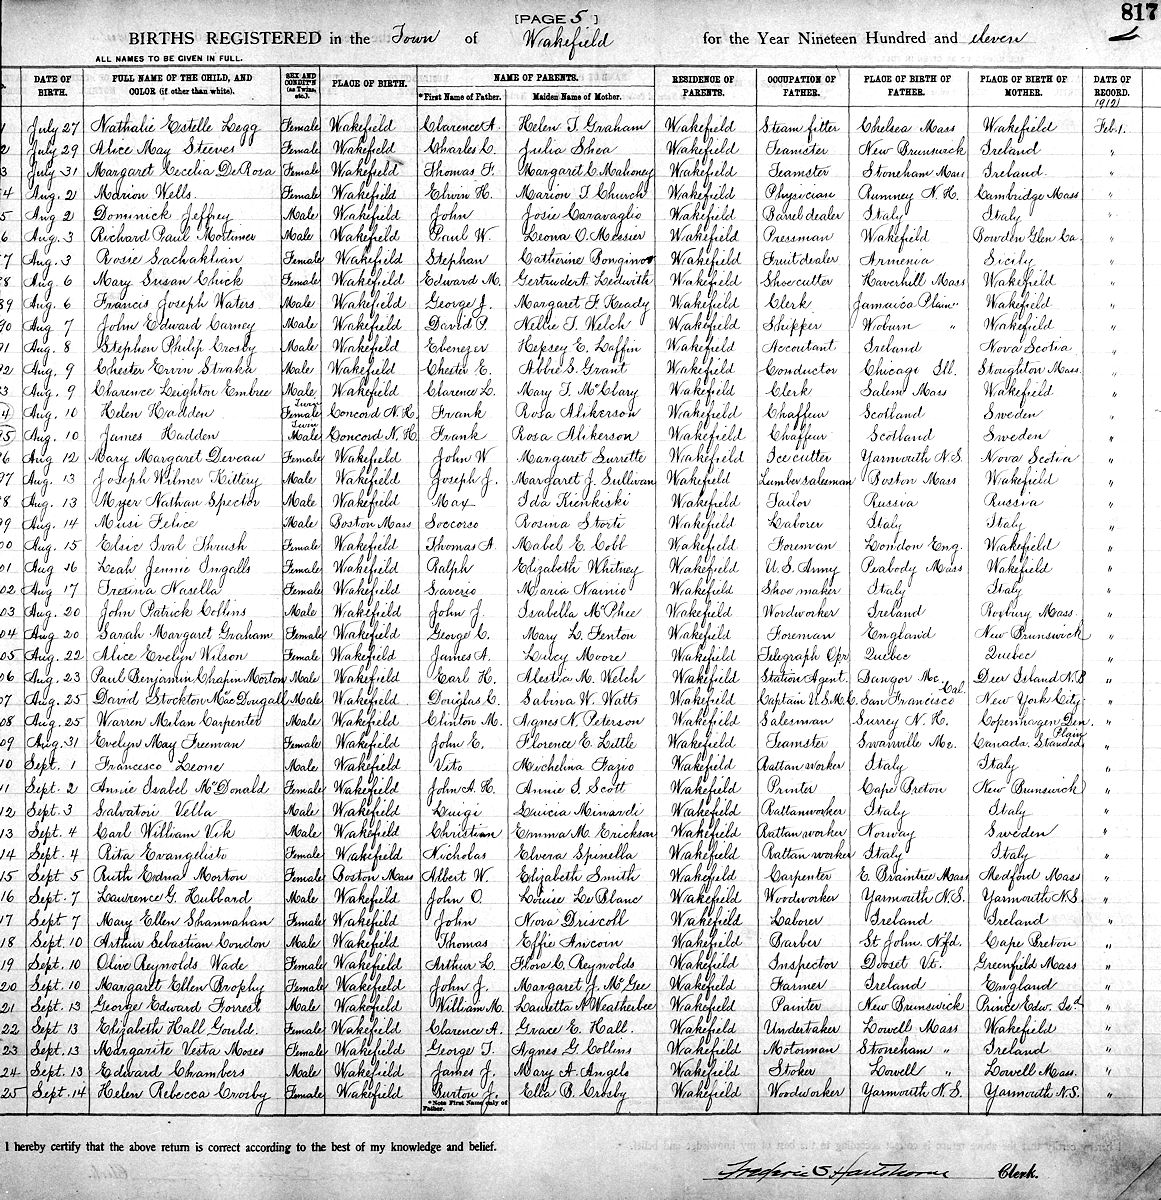 817
[PAGE 5]
BIRTHS REGISTERED in the Town of Wakefield for the Year Nineteen Hundred and eleven
ALL NAMES TO BE GIVEN IN FULL.
DATE OF BIRTH. FULL NAME OF THE CHILD, AND COLOR (if other than white). SEX AND CONDIT'N (as Twins, etc.). PLACE OF BIRTH. NAME OF PARENTS. *First Name of Father. Maiden Name of Mother. RESIDENCE OF PARENTS. OCCUPATION OF FATHER. PLACE OF BIRTH OF FATHER. PLACE OF BIRTH OF MOTHER. DATE OF RECORD.
1912
1 July 27 Nathalie Estelle Legg Female Wakefield Clarence A. Helen T. Graham Wakefield Steam fitter Chelsea Mass Wakefield Feb. 1.
2 July 29 Alice May Steeves Female Wakefield Charles L. Julia Shea Wakefield Teamster New Brunswick Ireland "
3 July 31 Margaret Cecelia DeRosa Female Wakefield Thomas F. Margaret C. Mahoney Wakefield Teamster Stoneham Mass Ireland "
4 Aug. 2 Marion Wells Female Wakefield Elwin H. Marion T. Church Wakefield Physician Rumney N.H. Cambridge Mass "
5 Aug 2 Dominick Jeffrey Male Wakefield John Josie Caravaglio Wakefield Barrel dealer Italy Italy "
6 Aug. 3 Richard Paul Mortimer Male Wakefield Paul W. Leona O. Messier Wakefield Pressman Wakefield Bowden Glen Ca. "
7 Aug. 3 Rosie Sachaklian Female Wakefield Stephan Catherine Wakefield Fruit dealer Armenia Sicily "
8 Aug. 6 Mary Susan Chick Female Wakefield Edward M. Gertrude A. Ledwith Wakefield Shoe cutter Haverhill Mass Wakefield "
89 Aug. 6 Francis Joseph Waters Male Wakefield George J. Margaret F. Keady Wakefield Clerk Jamaica Plain " Wakefield "
90 Aug. 7 John Edward Carney Male Wakefield David P. Nellie T. Welch Wakefield Shipper Woburn " Wakefield "
91 Aug. 8 Stephen Philip Crosby Male Wakefield Ebenezer Hepsey E. Laffin Wakefield Accoutant Ireland Nova Scotia "
92 Aug. 9 Chester Ervin Straka Male Wakefield Chester E. Abbie S. Grant Wakefield Conductor Chicago Ill. Stoughton Mass. "
3 Aug. 9 Clarence Leighton Embree Male Wakefield Clarence L. Mary T. McClary Wakefield Clerk Salem Mass Wakefield "
4 Aug. 10 Helen Hadden Twin Female Concord N.H. Frank Rosa Alikerson Wakefield Chaffeur Scotland Sweden "
95 Aug. 10 James Hadden Twin Male Concord N.H. Frank Rosa Alikerson Wakefield Chaffeur Scotland Sweden "
6 Aug 12 Mary Margaret Deveau Female Wakefield John W Margaret Surrette Wakefield Ice cutter Yarmouth N.S. Nova Scotia "
97 Aug. 13 Joseph Wilmer Kittery Male Wakefield Joseph J. Margaret J. Sullivan Wakefield Lumber salesman Boston Mass Wakefield "
8 Aug. 13 Myer Nathan Spector Male Wakefield Max Ida Kienkiski Wakefield Tailor Russia Russia "
99 Aug. 14 Musi Felice Male Boston Mass Soccorso Rosina Storti Wakefield Laborer Italy Italy "
00 Aug. 15 Elsie Ival Thrush Female Wakefield Thomas A. Mabel E. Cobb Wakefield Foreman London Eng. Wakefield "
01 Aug 16 Leah Jennie Ingalls Female Wakefield Ralph Elizabeth Whitney Wakefield U.S. Army Peabody Mass Wakefield "
02 Aug 17 Tresina Nasella Female Wakefield Saverio Maria Nainio Wakefield Shoe maker Italy Italy "
03 Aug. 20 John Patrick Collins Male Wakefield John J. Isabella McPhee Wakefield Woodworker Ireland Roxbury Mass. "
04 Aug 20 Sarah Margaret Graham Female Wakefield George C. Mary L. Fenton Wakefield Foreman England New Brunswick "
05 Aug. 22 Alice Evelyn Wilson Female Wakefield James A. Lucy Moore Wakefield Telegraph Opr Quebec Quebec "
06 Aug. 23 Paul Benjamin Chapin Morton Male Wakefield Earl H. Alestia M. Welch Wakefield Station Agent. Bangor Me. Deer Island N.B "
07 Aug. 25 David Stockton MacDougall Male Wakefield Douglas C. Sabina W. Watts Wakefield Captain U.S.M.C. San Francisco Cal. New York City "
08 Aug. 25 Warren Milan Carpenter Male Wakefield Clinton M. Agnes N. Peterson Wakefield Salesman Surrey N.H. Copenhagen Den. "
09 Aug. 31 Evelyn May Freeman Female Wakefield John E. Florence E. Little Wakefield Teamster Swanville Me. Canada. Standed Plain "
10 Sept. 1 Francesco Leone Male Wakefield Vito Michelina Fazio Wakefield Rattan worker Italy Italy "
11 Sept. 2 Annie Isabel McDonald Female Wakefield John A. H. Annie S. Scott Wakefield Printer Cape Breton New Brunswick "
12 Sept. 3 Salvatori Vella Male Wakefield Luigi Luicia Minardi Wakefield Rattanworker Italy Italy "
13 Sept. 4 Carl William Vik Male Wakefield Christian Emma M. Erickson Wakefield Rattan worker Norway Sweden "
14 Sept. 4 Rita Evangelisto Female Wakefield Nicholas Elvera Spinella Wakefield Rattan worker Italy Italy "
15 Sept 5 Ruth Edna Morton Female Boston Mass Albert W. Elizabeth Smith Wakefield Carpenter E. Braintree Mass Medford Mass "
16 Sept. 7 Lawrence G. Hubbard Male Wakefield John O. Louise LeBlanc Wakefield Woodworker Yarmouth N.S. Yarmouth N.S. "
17 Sept 7 Mary Ellen Shannahan Female Wakefield John Nova Driscoll Wakefield Laborer Ireland Ireland "
18 Sept. 10 Arthur Sebastian Condon Male Wakefield Thomas Effie Wakefield Barber St John. Nfd. Cape Breton "
19 Sept. 10 Olive Reynolds Wade Female Wakefield Arthur L. Flora C. Reynolds Wakefield Inspector Dorset Vt. Greenfield Mass "
20 Sept. 10 Margaret Ellen Brophy Female Wakefield John J. Margaret J. McGee Wakefield Farmer Ireland England "
21 Sept. 13 George Edward Forrest Male Wakefield William M. Lauretta N. Weatherbee Wakefield Painter New Brunswick Prince Edw. Isd. "
22 Sept 13 Elizabeth Hall Gould. Female Wakefield Clarence A. Grace E. Hall. Wakefield Undertaker Lowell Mass Wakefield "
23 Sept. 13 Margarite Vesta Moses Female Wakefield George T. Agnes G. Collins Wakefield Motorman Stoneham " Ireland "
24 Sept. 13 Edward Chambers Male Wakefield James J. Mary A. Angelo Wakefield Stoker Lowell " Lowell Mass. "
25 Sept. 14 Helen Rebecca Crosby Female Wakefield Burton J. Ella B. Crosby Wakefield Woodworker Yarmouth N.S. Yarmouth N.S. "
*Note First Name only of Father.
I hereby certify that the above return is correct according to the best of my knowledge and belief.
Frederic S. Hartshorne Clerk.